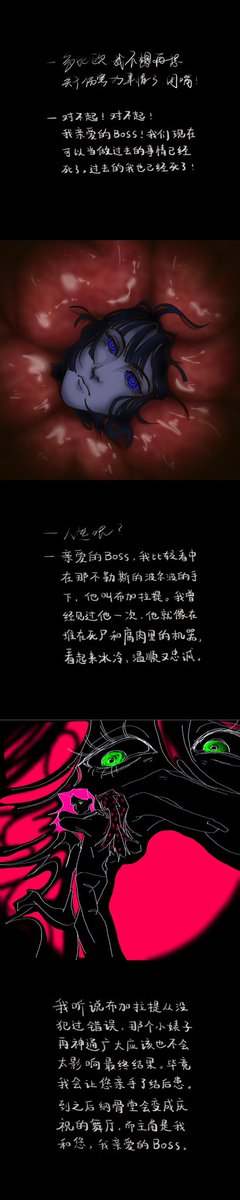 一 多比欧 我不想再听
关于伤害力单
一 对不起！对不起！
我亲爱的Boss！我们现在
可以当做过去的事情已经
死了。过去的我也已经死了！
一 人选呢？
一 亲爱的Boss，我比较看中
在那不勒斯的波尔波的手
下，他叫布加拉提。我曾
经见过他一次，他就像在
堆在死尸和腐肉里的机器，
看起来冰冷，温顺又忠诚。
我听说布加拉提从没
犯过错误，那个小婊子
再神通广大应该也不会
太影响最终结果。毕竟
我会让您亲手了结后患。
到之后纳骨堂会变成庆
祝的舞厅，而主角是我
和您，我亲爱的Boss。